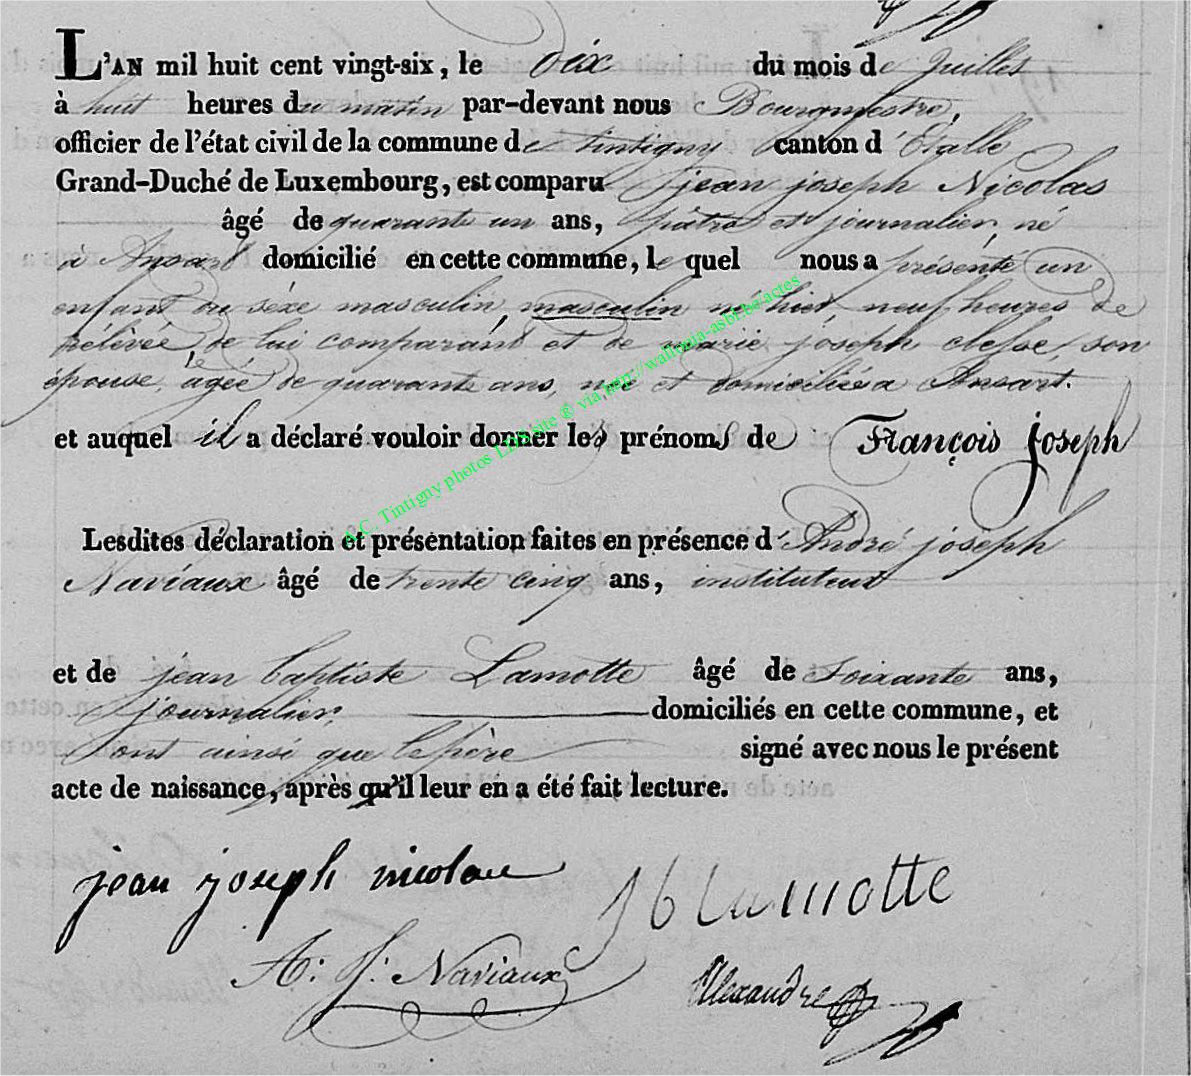 L'AN mil huit cent vingt-six, le dix du mois de juillet
à huit heures du matin par-devant nous Bourgmestre,
officier de l'état civil de la commune de tintigny canton d'Etalle
Grand-Duché de Luxembourg, est comparu jean joseph Nicolas
âgé de quarante un ans, pâtre et journalier, né
à Ansart domicilié en cette commune, le quel nous a présenté un
enfant du séxe masculin, masculin né hier, neuf heures de
rélévée, de lui comparant et de marie joseph clesse, son
épouse, agée de quarante ans, née et domiciliée a Ansart.
et auquel il a déclaré vouloir donner les prénoms de François joseph
Lesdites déclaration et présentation faites en présence d'André joseph
Naviaux âgé de trente cinq ans, instituteur
et de jean baptiste Lamotte âgé de soixante ans,
journalier, domiciliés en cette commune, et
sont ainsi que le père signé avec nous le présent
acte de naissance, après qu'il leur en a été fait lecture.
jean joseph nicolas
J b lamotte
A: J: Naviaux
Alexandre
A.C. Tintigny photos LDS site ® via http://wallonia-asbl.be/actes